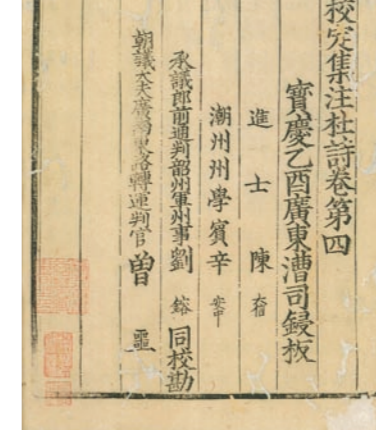 校定集注杜詩卷第四
寶慶乙酉廣東漕司鋟板
進士陳大信
潮州州學賓辛安中
承議郎前通判韶州軍州事劉鎔同校勘
朝議大夫廣南東路轉運判官曾噩